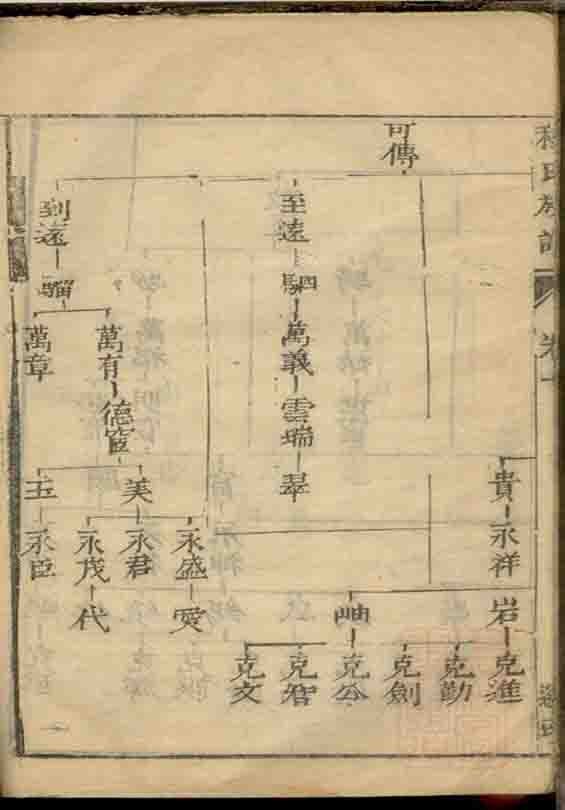 氏族譜
卷一
貴 永祥
岩 克進
克勤
克劍
岫 克公
克君
克文
可傳
至遠 駟 萬義 雲瑞 翠
到遠 騮
萬有 德富
萬章
美
玉 永臣
永盛 愛
永君
永茂 代